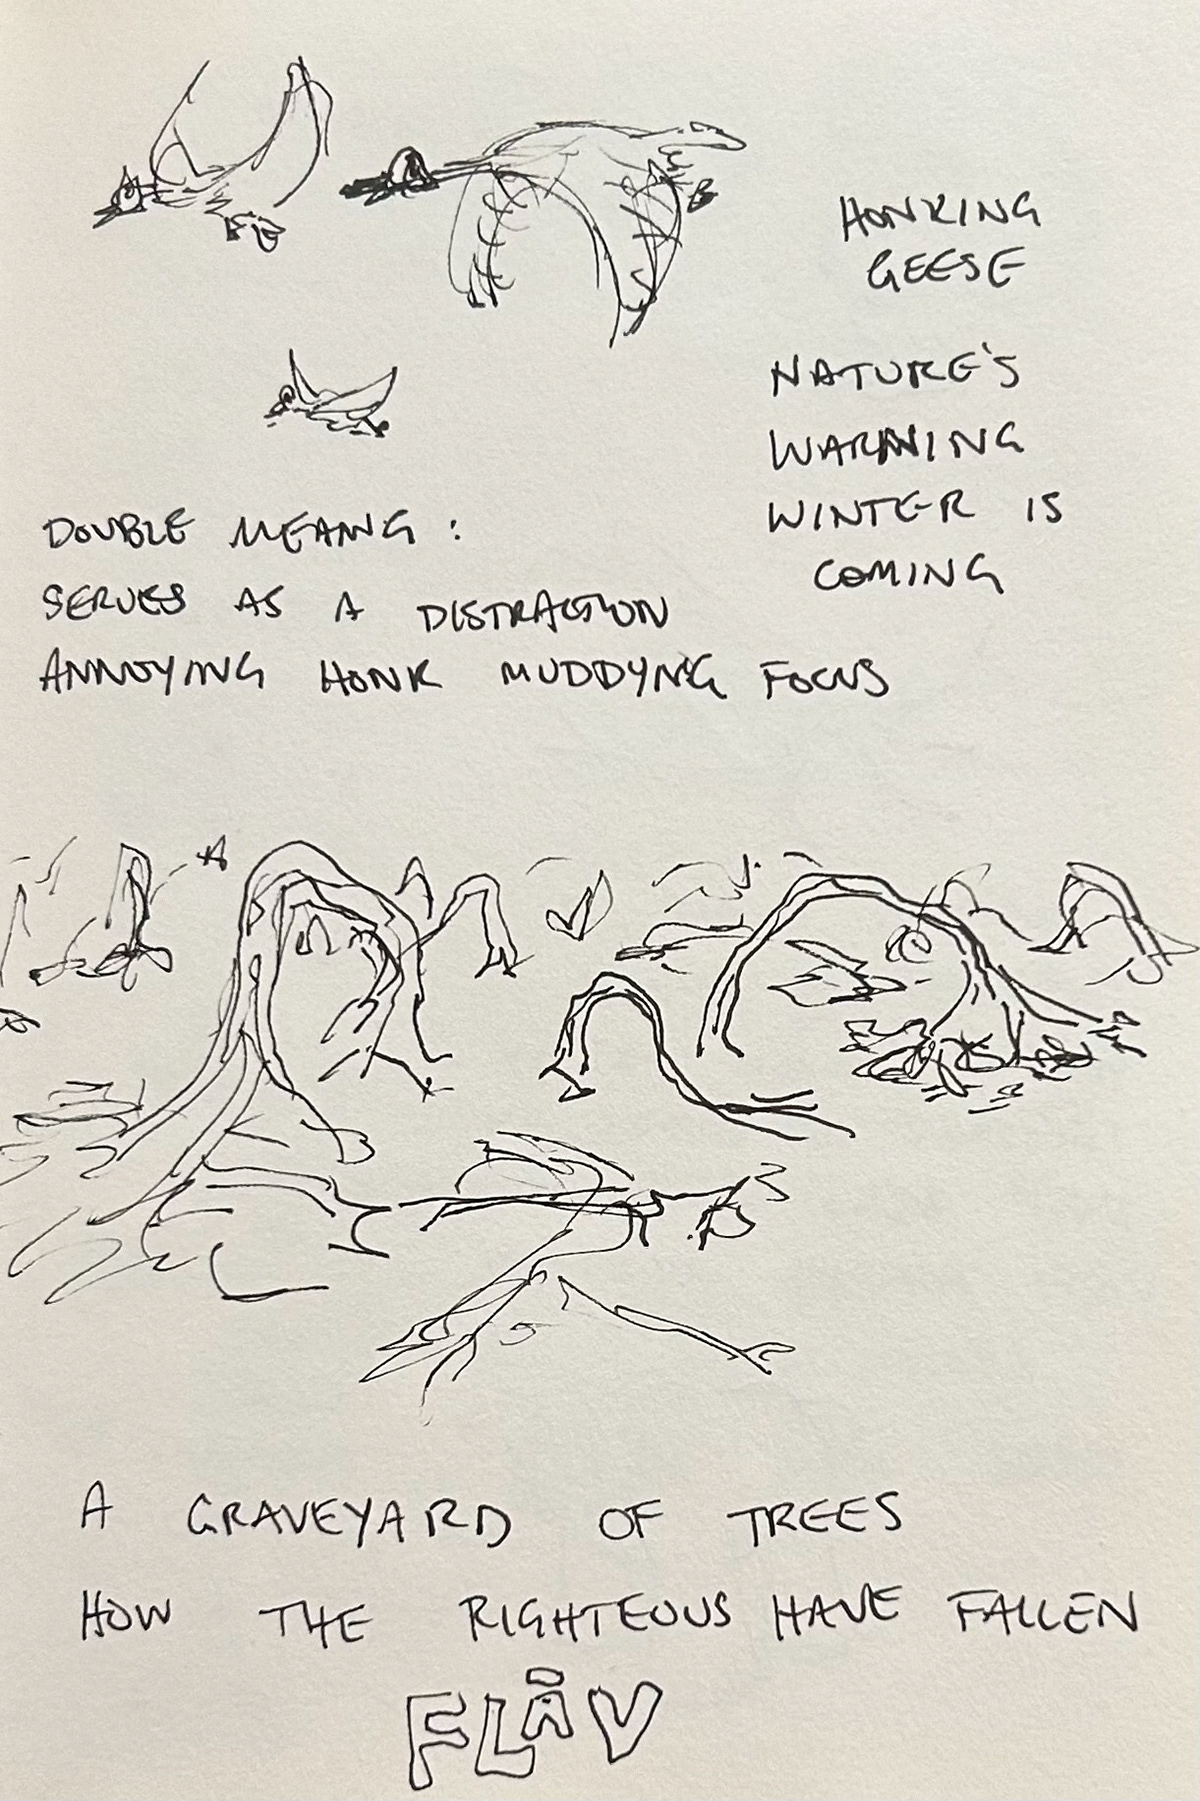 HONKING
GEESE
NATURE'S
WARNING
WINTER IS
COMING
DOUBLE MEANG :
SERVES AS A DISTRACTION
ANNOYING HONK MUDDYNG FOCUS
A GRAVEYARD OF TREES
HOW THE RIGHTEOUS HAVE FALLEN
FLĀV